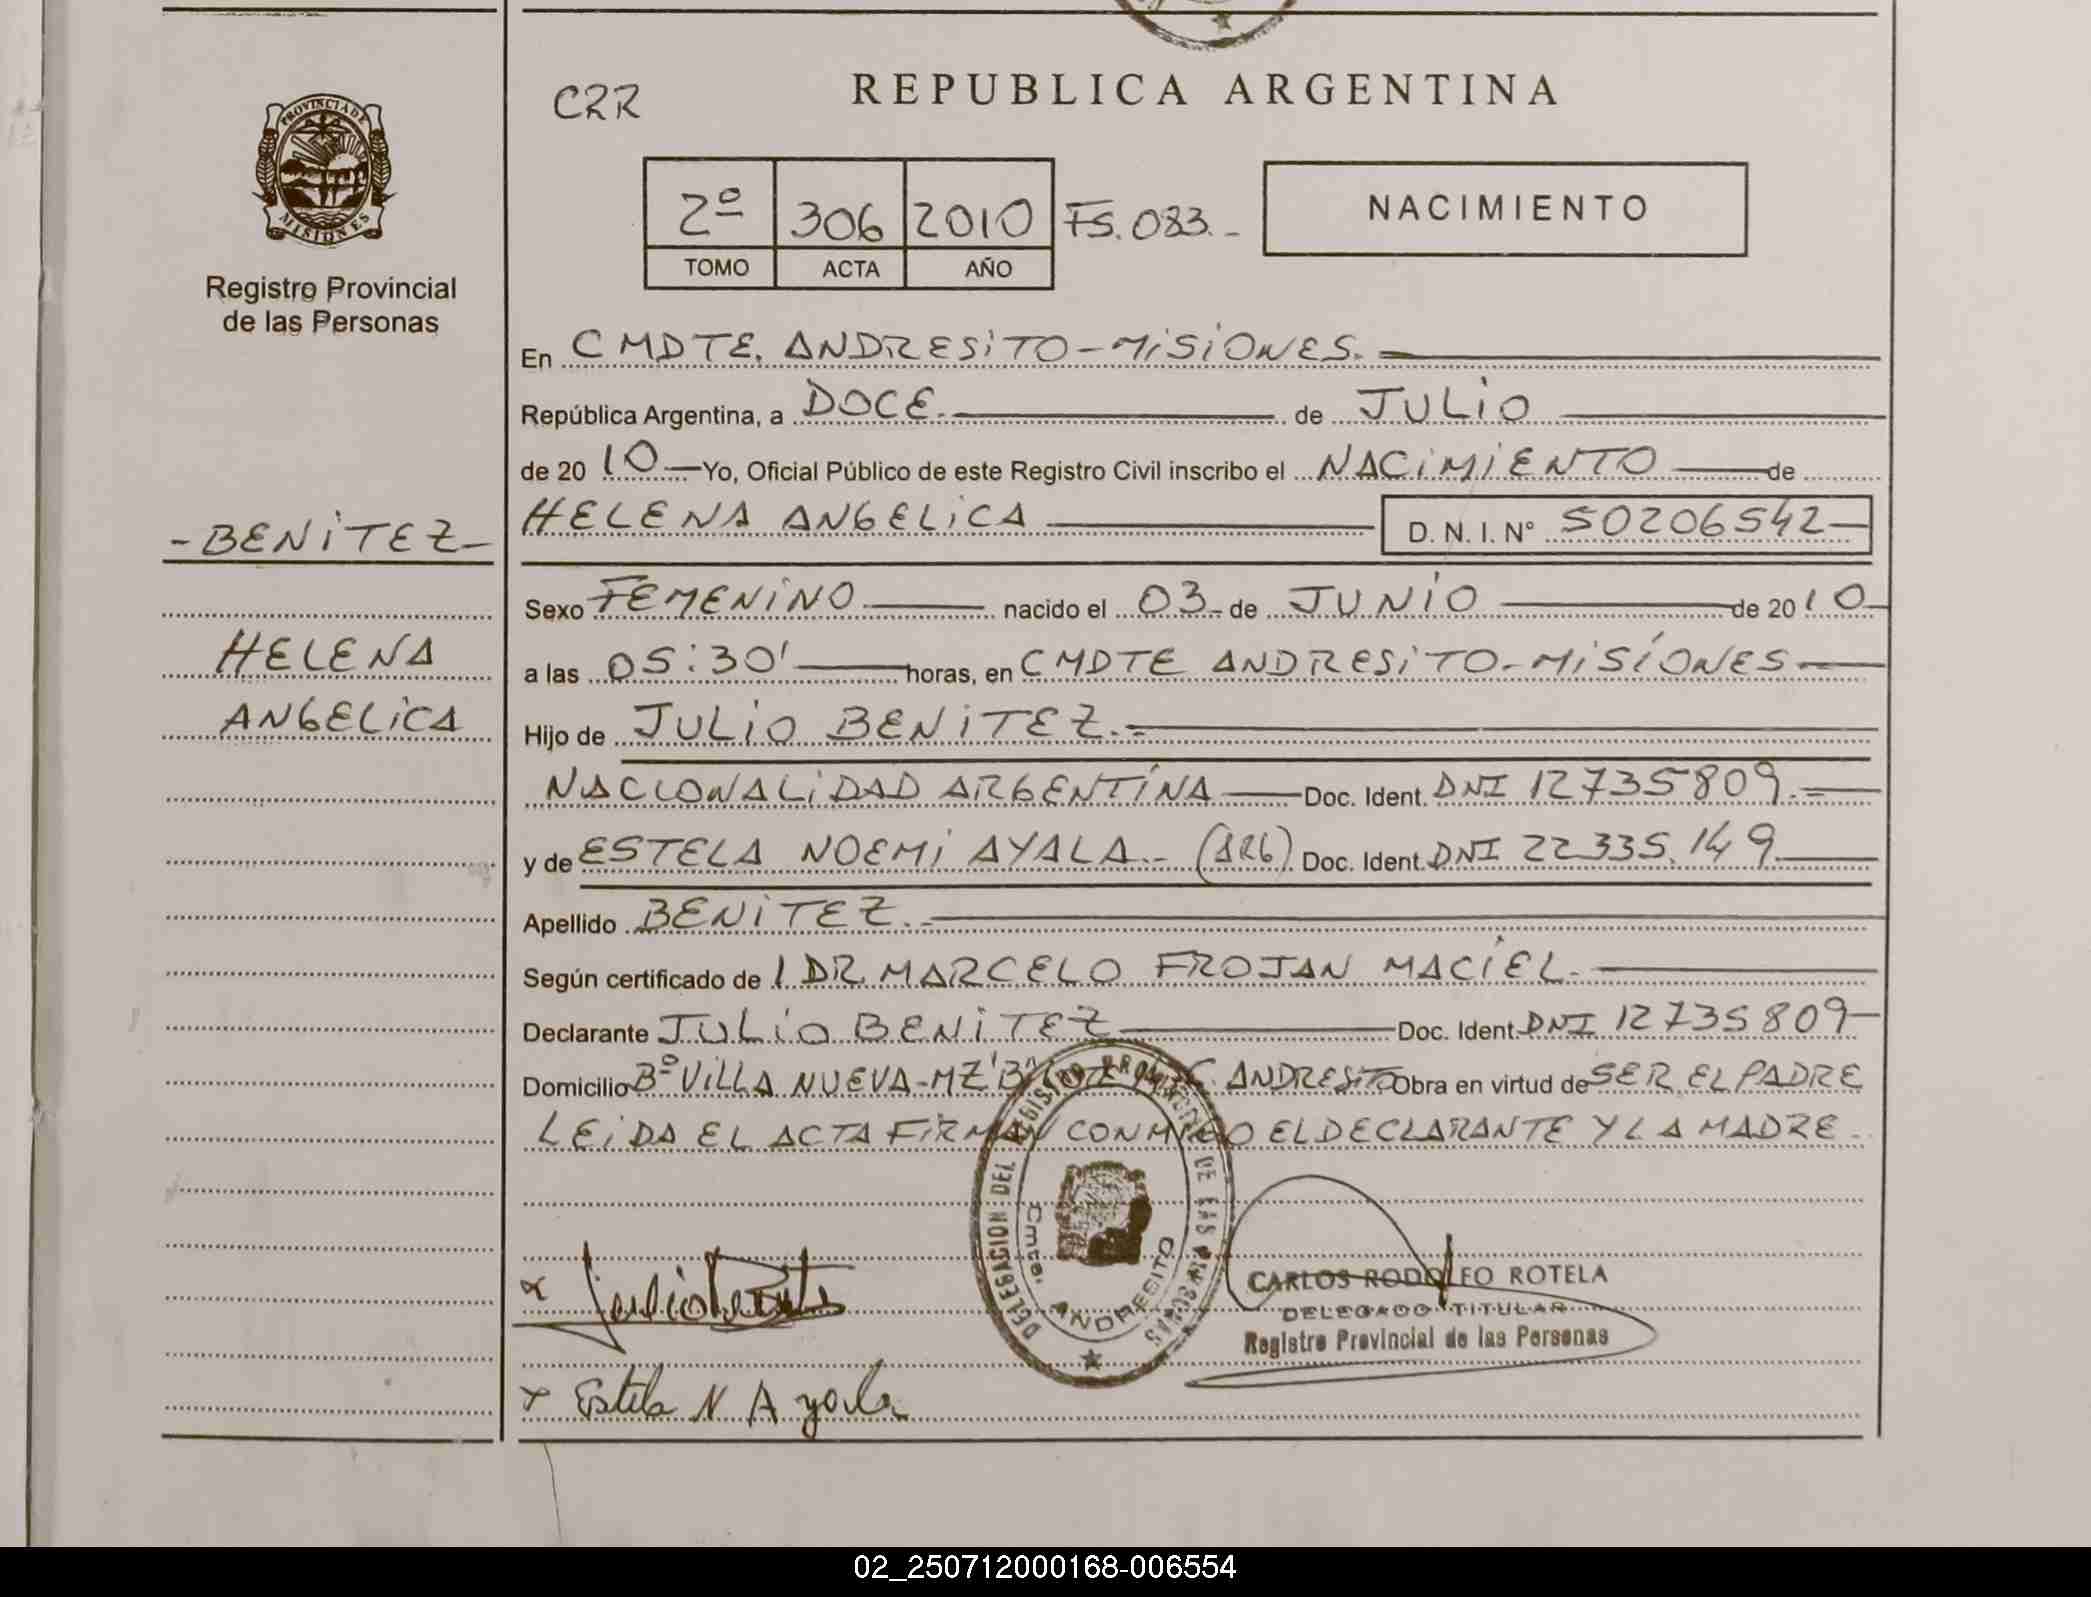 PROVINCIA DE
MISIONES
Registro Provincial
de las Personas
- BENITEZ -
HELENA
ANGELICA
CRR
REPUBLICA ARGENTINA
2º 306 2010 FS. 083.-
TOMO ACTA AÑO
NACIMIENTO
En CMDTE. ANDRESITO - MISIONES.
República Argentina, a DOCE. de JULIO
de 20 10 Yo, Oficial Público de este Registro Civil inscribo el NACIMIENTO de
HELENA ANGELICA D. N. I. Nº 50206542
Sexo FEMENINO nacido el 03 de JUNIO de 20 10
a las 05:30' horas, en CMDTE ANDRESITO - MISIONES
Hijo de JULIO BENITEZ.
NACIONALIDAD ARGENTINA Doc. Ident. DNI 12735809.
y de ESTELA NOEMI AYALA.- (ARG) Doc. Ident. DNI 22335.149
Apellido BENITEZ.-
Según certificado de DR MARCELO FROJAN MACIEL.
Declarante JULIO BENITEZ Doc. Ident. DNI 12735809
Domicilio Bº VILLA NUEVA - MZ "B" C. ANDRESITO Obra en virtud de SER EL PADRE
LEIDA EL ACTA FIRMAN CONMIGO EL DECLARANTE Y LA MADRE.
DELEGACION DEL REGISTRO PROVINCIAL DE LAS PERSONAS
Cmte. ANDRESITO
CARLOS RODOLFO ROTELA
DELEGADO TITULAR
Registro Provincial de las Personas
x Estela N Ayala
02_250712000168-006554